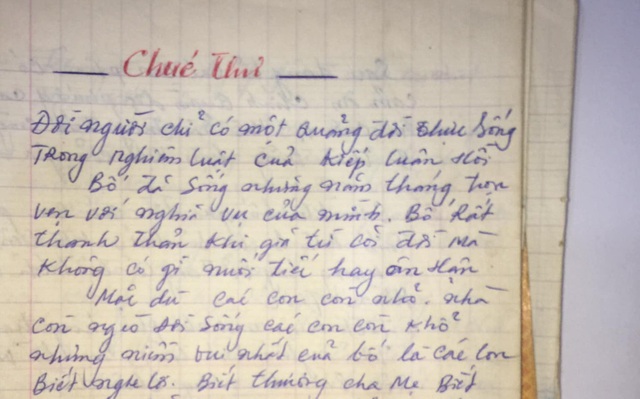 Chúc Thư
Đời người chỉ có một quãng đời được sống
Trong nghiêm luật của kiếp luân hồi
Bố đã sống những năm tháng trọn
vẹn với nghĩa vụ của mình. Bố Rất
thanh thản khi giã từ cõi đời mà
không có gì nuối tiếc hay ân hận.
Mặc dù các con còn nhỏ. nhà
còn nghèo đời sống các con còn khổ
nhưng niềm vui nhất của bố là các con
Biết nghe lời. Biết thương cha Mẹ Biết